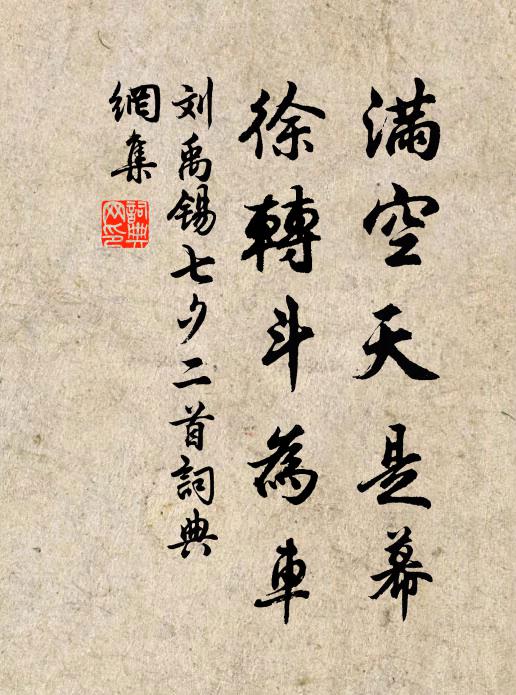 滿空天是幕
徐轉斗為車
刘禹锡七夕二首詞典
網集
詞典網印